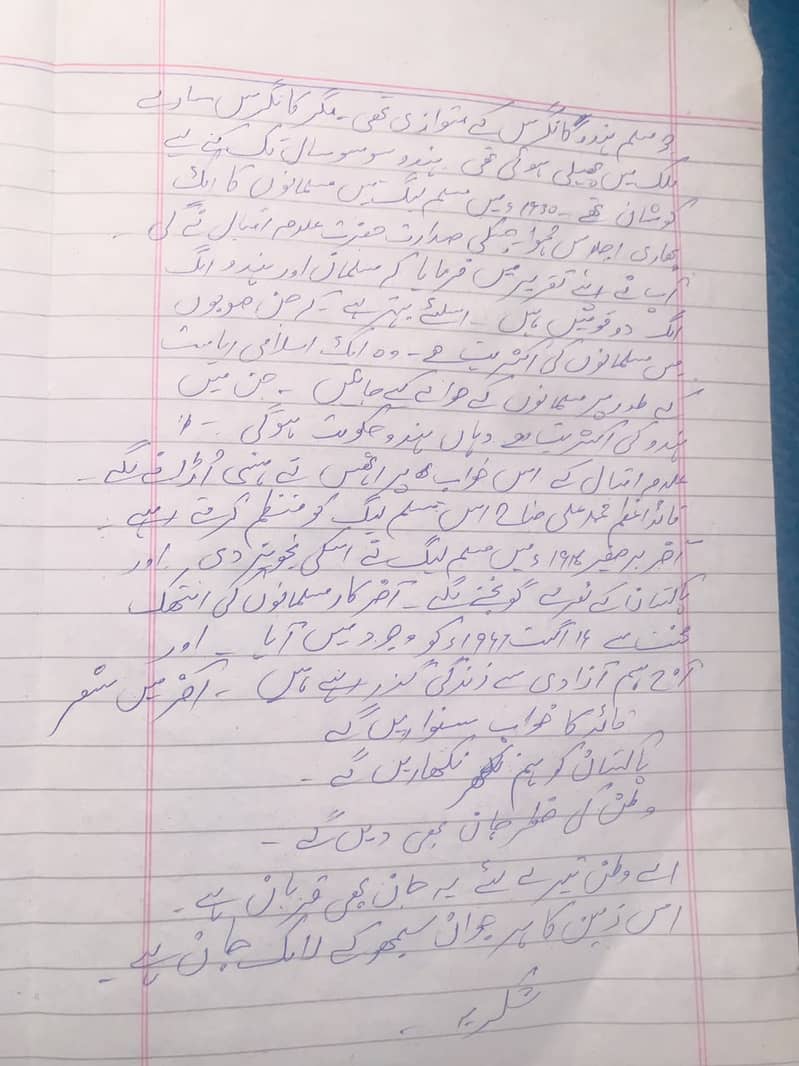 مسلم ہندو کانگرس کے متوازی تھی۔ مگر کانگرس سارے
ملک میں پھیلی ہوئی تھی۔ ہندو سو سو سال تک کے لیے
کوشاں تھے۔ ۱۹۳۰ء میں مسلم لیگ میں مسلمانوں کا ایک
بھاری اجلاس ہُوا جسکی صدارت حضرت علامہ اقبال نے کی۔
آپ نے اپنے تقریر میں فرمایا کہ مسلمان اور ہندو الگ
الگ دو قومیں ہیں۔ اسلئے بہتر ہے۔ کہ جن صوبوں
میں مسلمانوں کی اکثریت ہے۔ وہ ایک اسلامی ریاست
کے طور پر مسلمانوں کے حوالے کیے جائیں۔ جن میں
ہندو کی اکثریت ہو وہاں ہندو حکومت ہوگی۔"
علامہ اقبال کے اس خواب پر انھیں نے ہنسی اُڑانے لگے۔
قائداعظم محمد علی جناح اس مسلم لیگ کو منظم کرتے رہے۔
آخر برصغیر میں مسلم لیگ نے اسکی تجویز دی۔ اور
پاکستان کے نعرے گونجنے لگے۔ آخر کار مسلمانوں کی انتھک
محنت سے ۱۴ اگست ۱۹۴۷ء کو وجود میں آیا۔ اور
آج ہم آزادی سے زندگی گزار رہے ہیں۔ آخر میں شعر
قائد کا خواب سنواریں گے
پاکستان کو ہم نکھاریں گے۔
وطن کی خاطر جان بھی دیں گے۔
اے وطن تیرے لئے یہ جان بھی قربان ہے۔
اس زمین کا ہر جوان سمجھو کے جان ہے۔
شکریہ۔